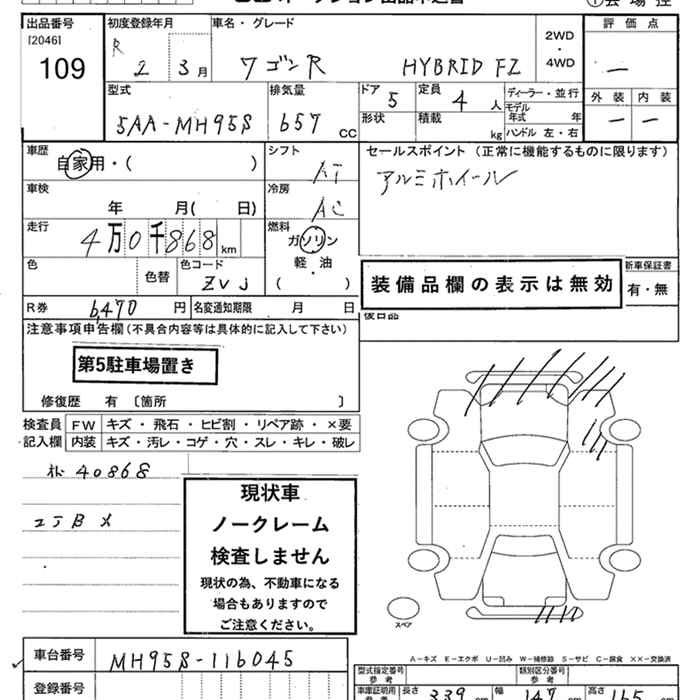 出品番号 初度登録年月 車名・グレード 評価点
[2046] 109
R 2 3月 ワゴンR HYBRID FZ 2WD・4WD —
型式 排気量 ドア 5 定員 4人 ディーラー・並行 外装 内装
5AA-MH95S 657 CC 形状 積載 kg モデル年式 年 ハンドル 左・右 — —
車歴 シフト セールスポイント (正常に機能するものに限ります)
自家用・( ) AT アルミホイール
車検 冷房
年 月( 日) AC
走行 燃料
4万0千868km ガソリン
色 色替 色コード 軽・油
ZVJ ( ) 装備品欄の表示は無効 新車保証書
有・無
R券 6,470円 名変通知期限 月 日 後日品
注意事項申告欄(不具合内容等は具体的に記入して下さい)
第5駐車場置き
修復歴 有 〔箇所 〕
検査員 FW キズ・飛石・ヒビ割・リペア跡・×要
記入欄 内装 キズ・汚レ・コゲ・穴・スレ・キレ・破レ
40868
現状車
ノークレーム
検査しません
現状の為、不動車になる
場合もありますので
ご注意ください。
スペア
車台番号 MH95S-116045
A-キズ E-エクボ U-凹み W-補修跡 S-サビ C-腐食 XX-交換済
型式指定番号 参考 類別区分番号 参考
登録番号 車庫証明用 参考 長さ 339 cm 幅 147 cm 高さ 165 cm